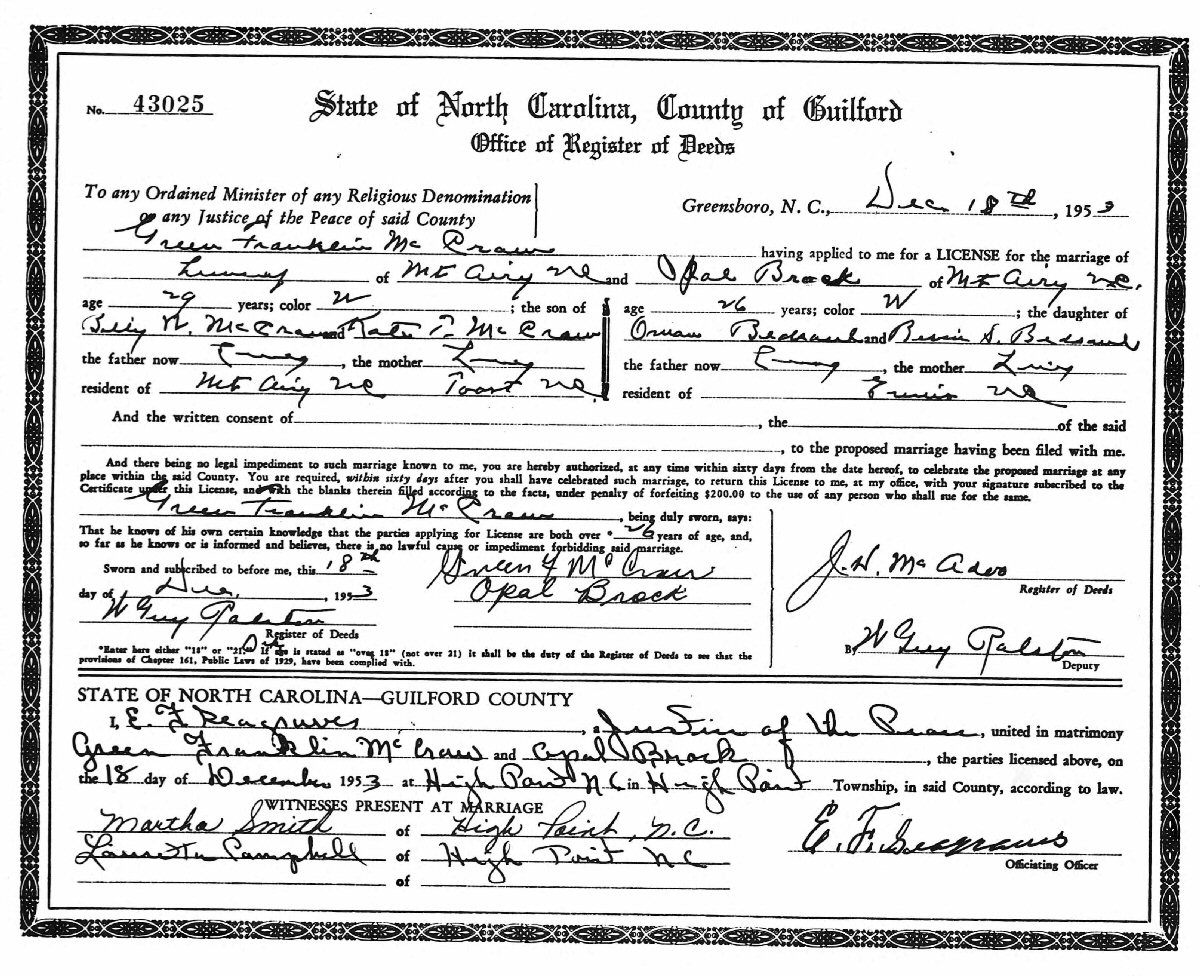 No. 43025
State of North Carolina, County of Guilford
Office of Register of Deeds
To any Ordained Minister of any Religious Denomination
or any Justice of the Peace of said County
Greensboro, N. C., Dec 18th, 1953
Green Franklin McCraw having applied to me for a LICENSE for the marriage of
of Mt Airy NC and Opal Brock of Mt Airy N.C.
age 29 years; color W; the son of
Billy W. McCraw and Kate P. McCraw
the father now, the mother
resident of Mt Airy NC Toast NC
age 26 years; color W; the daughter of
and S.
the father now, the mother
resident of NC
And the written consent of, the of the said
, to the proposed marriage having been filed with me.
And there being no legal impediment to such marriage known to me, you are hereby authorized, at any time within sixty days from the date hereof, to celebrate the proposed marriage at any
place within the said County. You are required, within sixty days after you shall have celebrated such marriage, to return this License to me, at my office, with your signature subscribed to the
Certificate under this License, and with the blanks therein filled according to the facts, under penalty of forfeiting $200.00 to the use of any person who shall sue for the same.
Green Franklin McCraw, being duly sworn, says:
That he knows of his own certain knowledge that the parties applying for License are both over * 26 years of age, and,
so far as he knows or is informed and believes, there is no lawful cause or impediment forbidding said marriage.
Sworn and subscribed to before me, this 18th
day of Dec., 1953
W Guy Ralston
Register of Deeds
Green F McCraw
Opal Brock
*Enter here either "18" or "21." If age is stated as "over 18" (not over 21) it shall be the duty of the Register of Deeds to see that the
provisions of Chapter 161, Public Laws of 1929, have been complied with.
J. H. McAdoo
Register of Deeds
By W Guy Ralston
Deputy
STATE OF NORTH CAROLINA—GUILFORD COUNTY
I, E. F. Seagraves, a Justice of the Peace, united in matrimony
Green Franklin McCraw and Opal Brock, the parties licensed above, on
the 18 day of December 1953 at High Point NC in High Point Township, in said County, according to law.
WITNESSES PRESENT AT MARRIAGE
Martha Smith of High Point, N.C.
Campbell of High Point NC
of
E. F. Seagraves
Officiating Officer